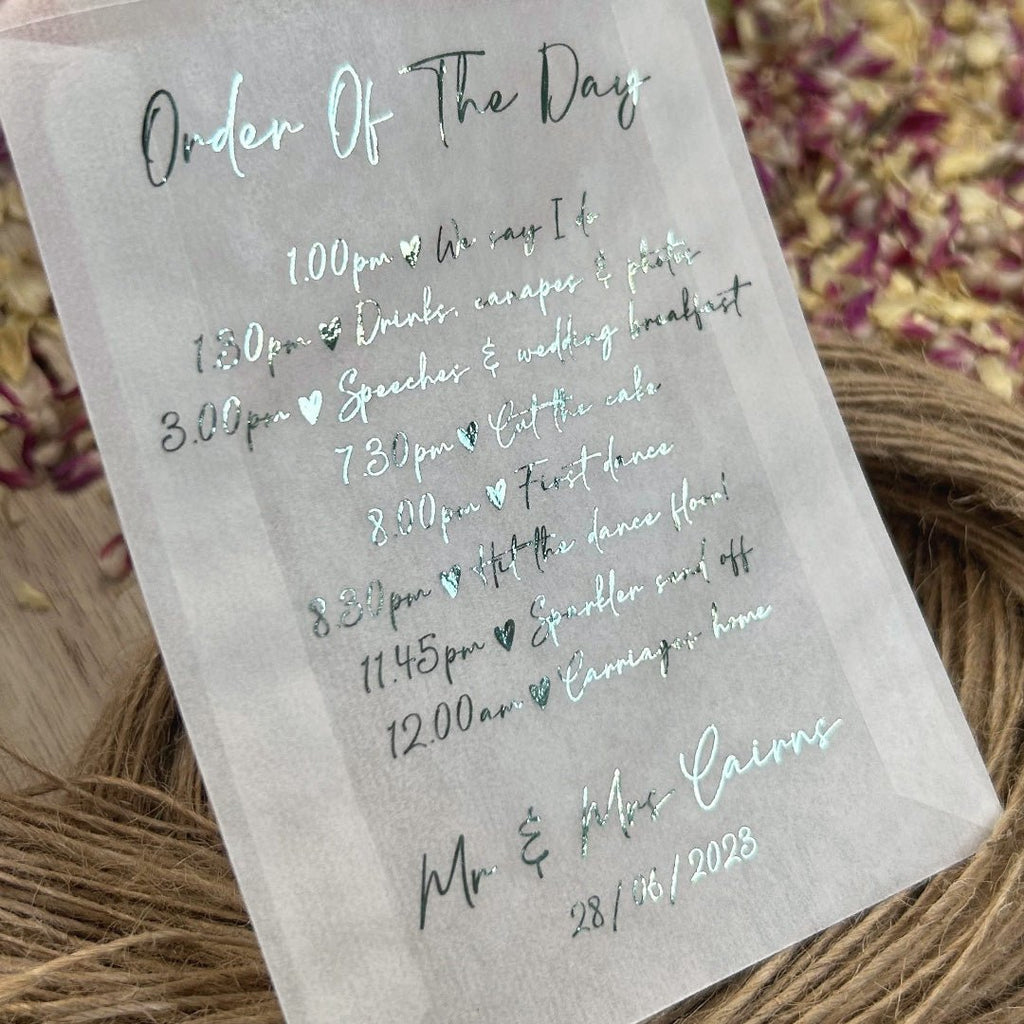 Order Of The Day
1.00pm ♥ We say I do
1.30pm ♥ Drinks, canapes & photos
3.00pm ♥ Speeches & wedding breakfast
7.30pm ♥ Cut the cake
8.00pm ♥ First dance
8.30pm ♥ Hit the dance floor!
11.45pm ♥ Sparkler send off
12.00am ♥ Carriages home
Mr & Mrs Cairns
28/06/2023